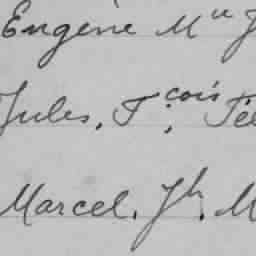 Eugène Mie J
Jules, Fçois Fél
Marcel, Jh, M